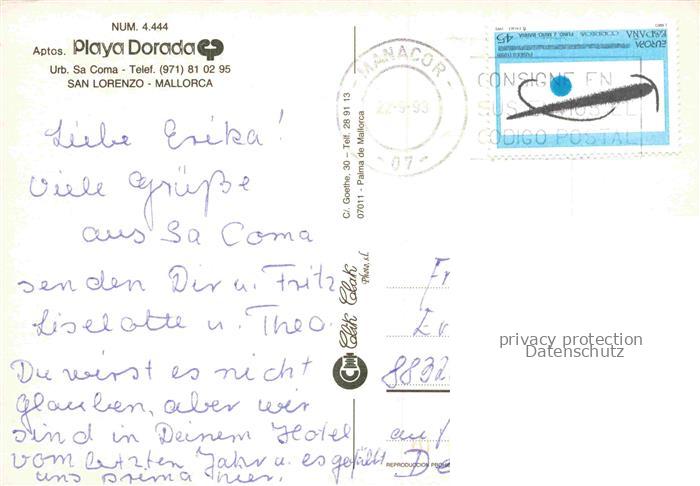 NUM. 4.444
Aptos. Playa Dorada
Urb. Sa Coma - Telef. (971) 81 02 95
SAN LORENZO - MALLORCA
Liebe Erika!
Viele Grüße
aus Sa Coma
senden Dir u. Fritz
Liselotte u. Theo.
Du wirst es nicht
glauben, aber wir
sind in Deinem Hotel
vom letzten Jahr u. es gefällt
uns prima hier.
C/. Goethe, 30 - Telf. 28 91 13
07011 - Palma de Mallorca
Clik Clak
Photo, s.l.
MANACOR
22-9-93
-07-
CONSIGNE EN
SUS ENVIOS EL
CODIGO POSTAL
EUROPA
ESPAÑA
45
Fr
Er
8832
privacy protection
Datenschutz